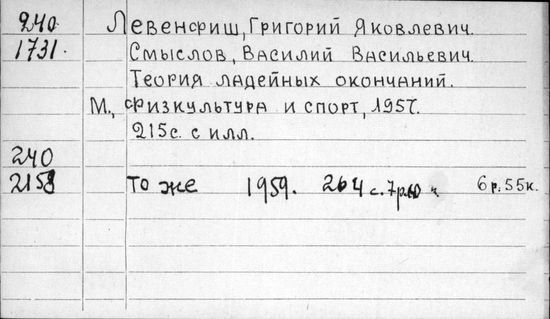 240 Левенфиш, Григорий Яковлевич.
1731. Смыслов, Василий Васильевич.
Теория ладейных окончаний.
М., Физкультура и спорт, 1957.
215с. с илл.
240
2158 то же 1959. 264 с. 6 р. 55к.